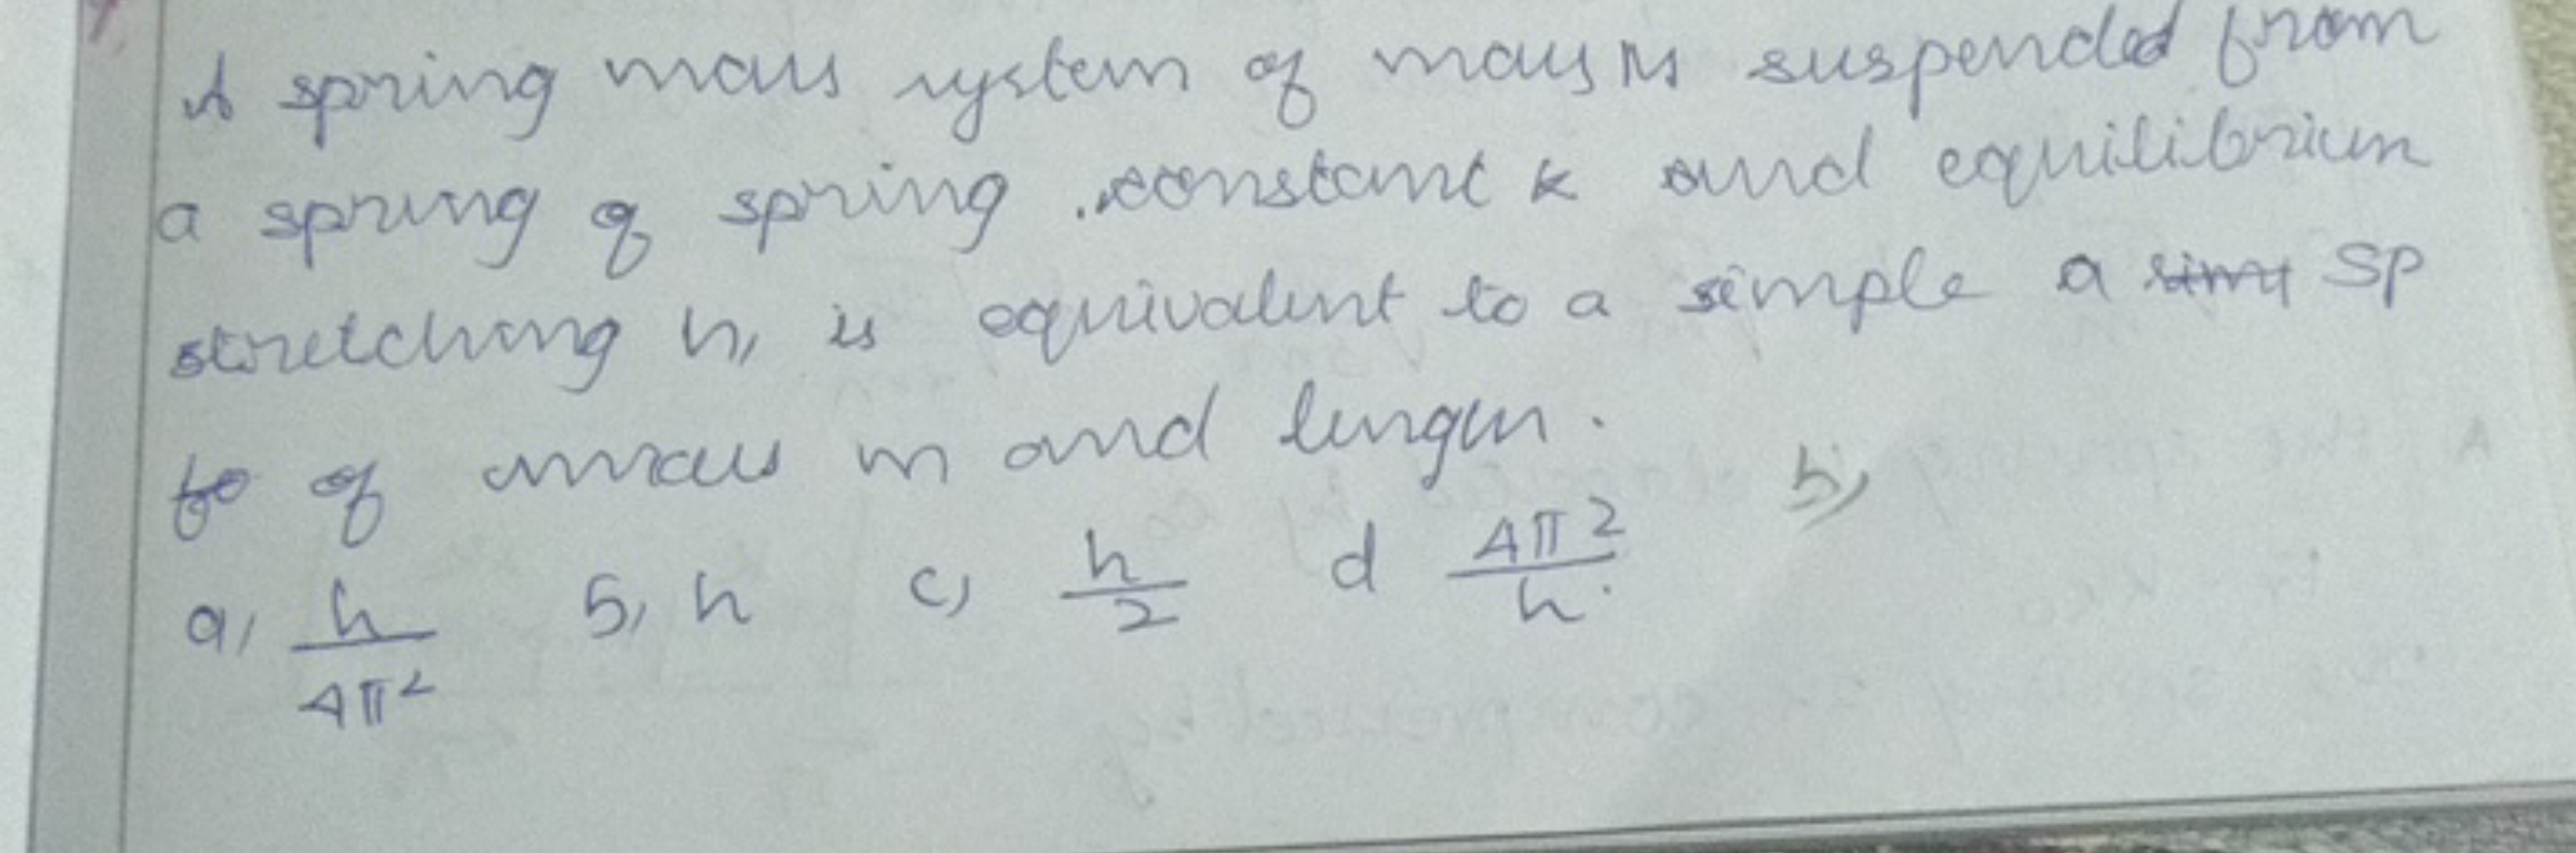 A spring mass system of mass M suspended from
a spring of spring constant k and equilibrium
stretching h, is equivalent to a simple a SP
of mass m and length.
a, h/4π² b, h c, h/2 d 4π²/h. b,